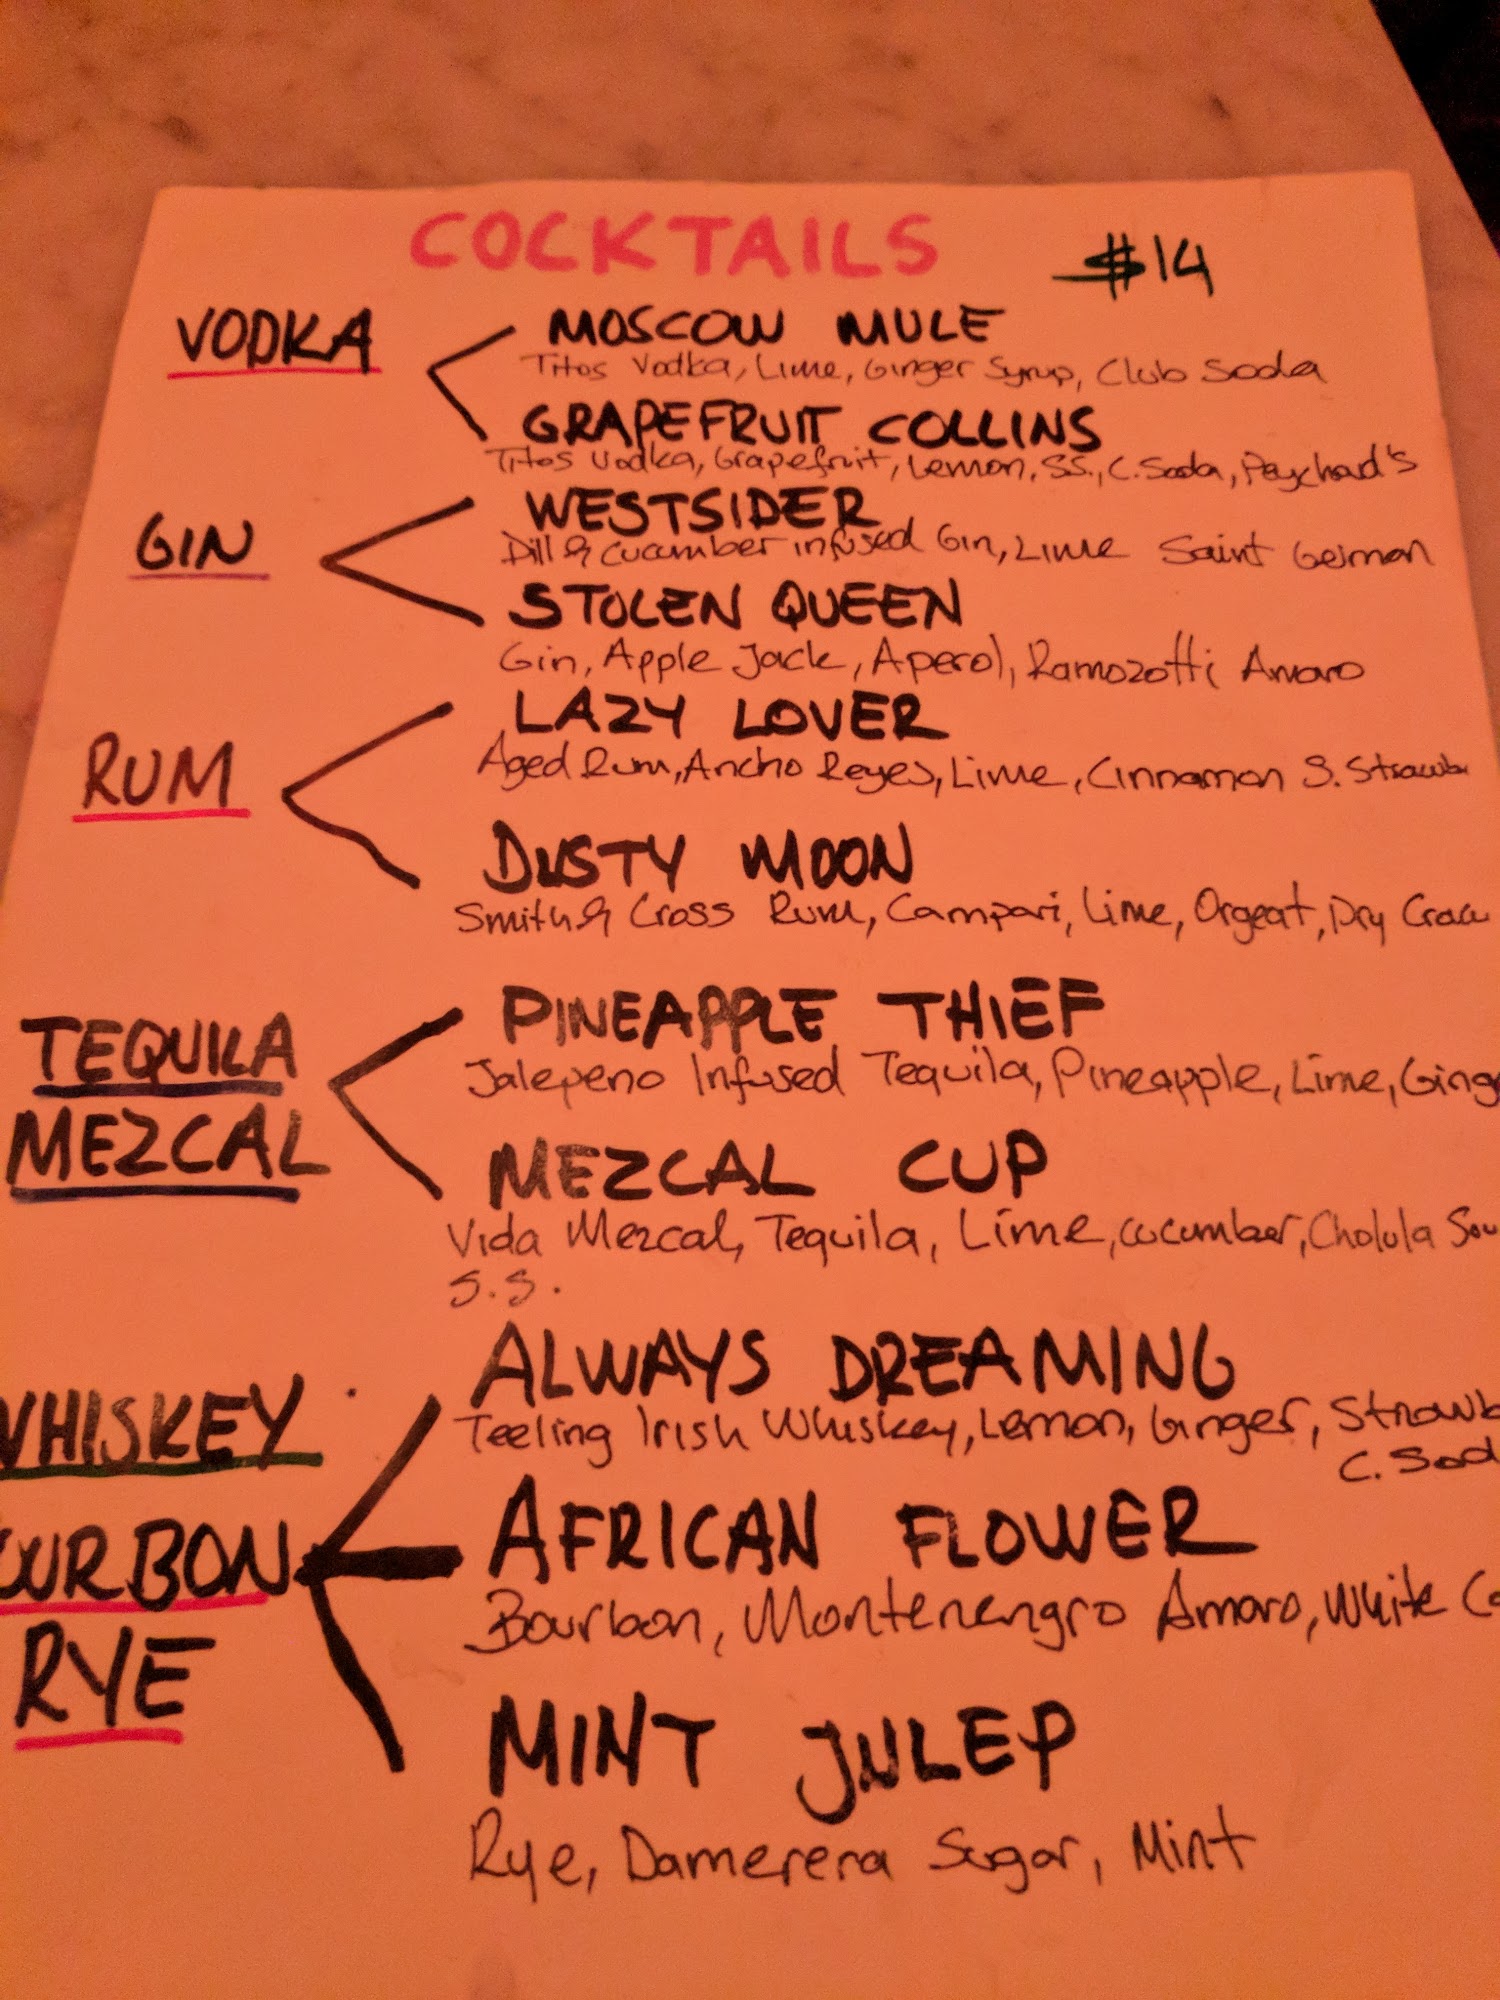 COCKTAILS $14
VODKA
MOSCOW MULE
Titos Vodka, Lime, Ginger Syrup, Club Soda
GRAPEFRUIT COLLINS
Titos Vodka, Grapefruit, Lemon, S.S., C. Soda, Peychaud's
GIN
WESTSIDER
Dill & cucumber infused Gin, Lime Saint Germon
STOLEN QUEEN
Gin, Apple Jack, Aperol, Ramozotti Amaro
RUM
LAZY LOVER
Aged Rum, Ancho Reyes, Lime, Cinnamon S. Strawb
DUSTY MOON
Smith & Cross Rum, Campari, Lime, Orgeat, Dry
TEQUILA
MEZCAL
PINEAPPLE THIEF
Jalepeno Infused Tequila, Pineapple, Lime, Ging
MEZCAL CUP
Vida Mezcal, Tequila, Lime, cucumber, Cholula
S.S.
WHISKEY
OURBON
RYE
ALWAYS DREAMING
Teeling Irish Whiskey, Lemon, Ginger, Strawb
C. Sod
AFRICAN FLOWER
Bourbon, Montenengro Amaro, White C
MINT JULEP
Rye, Damerera Sugar, Mint